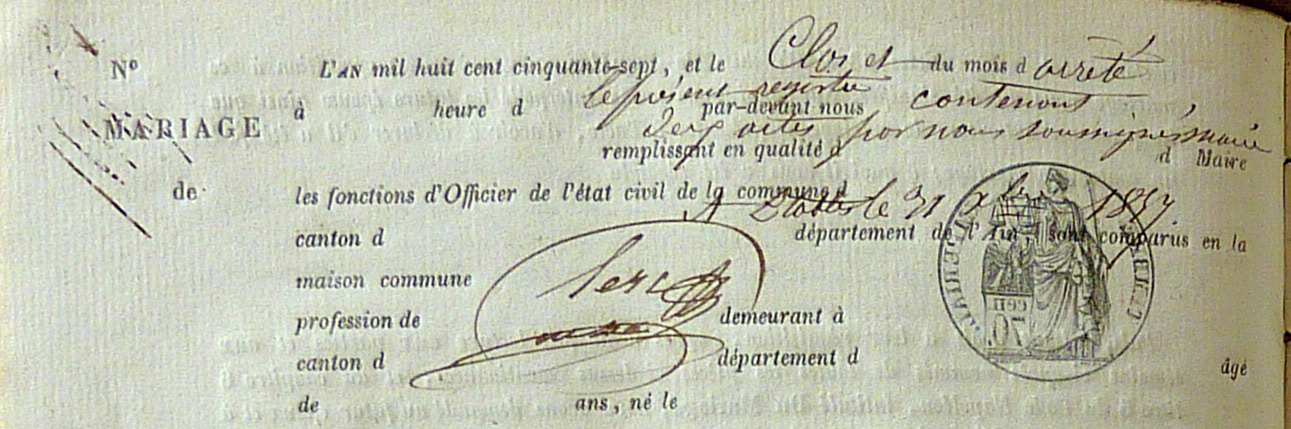 N° L'AN mil huit cent cinquante-sept, et le Clos et du mois d arrêté
à heure d le présent registre par-devant nous contenant
MARIAGE
actes par nous soussigné maire
remplissant en qualité d d Maire
de les fonctions d'Officier de l'état civil de la commune d
le 31 Xbre 1857
canton d département de l'Ain, sont comparus en la
maison commune
profession de demeurant à
canton d département d âgé
de ans, né le